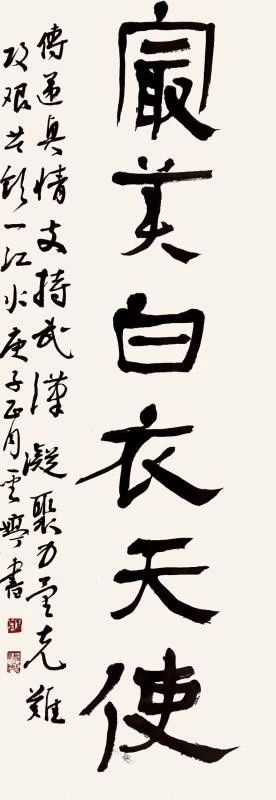 最美白衣天使
傳遞真情支持武漢凝聚力量克難
攻艱共飲一江水庚子正月雲書